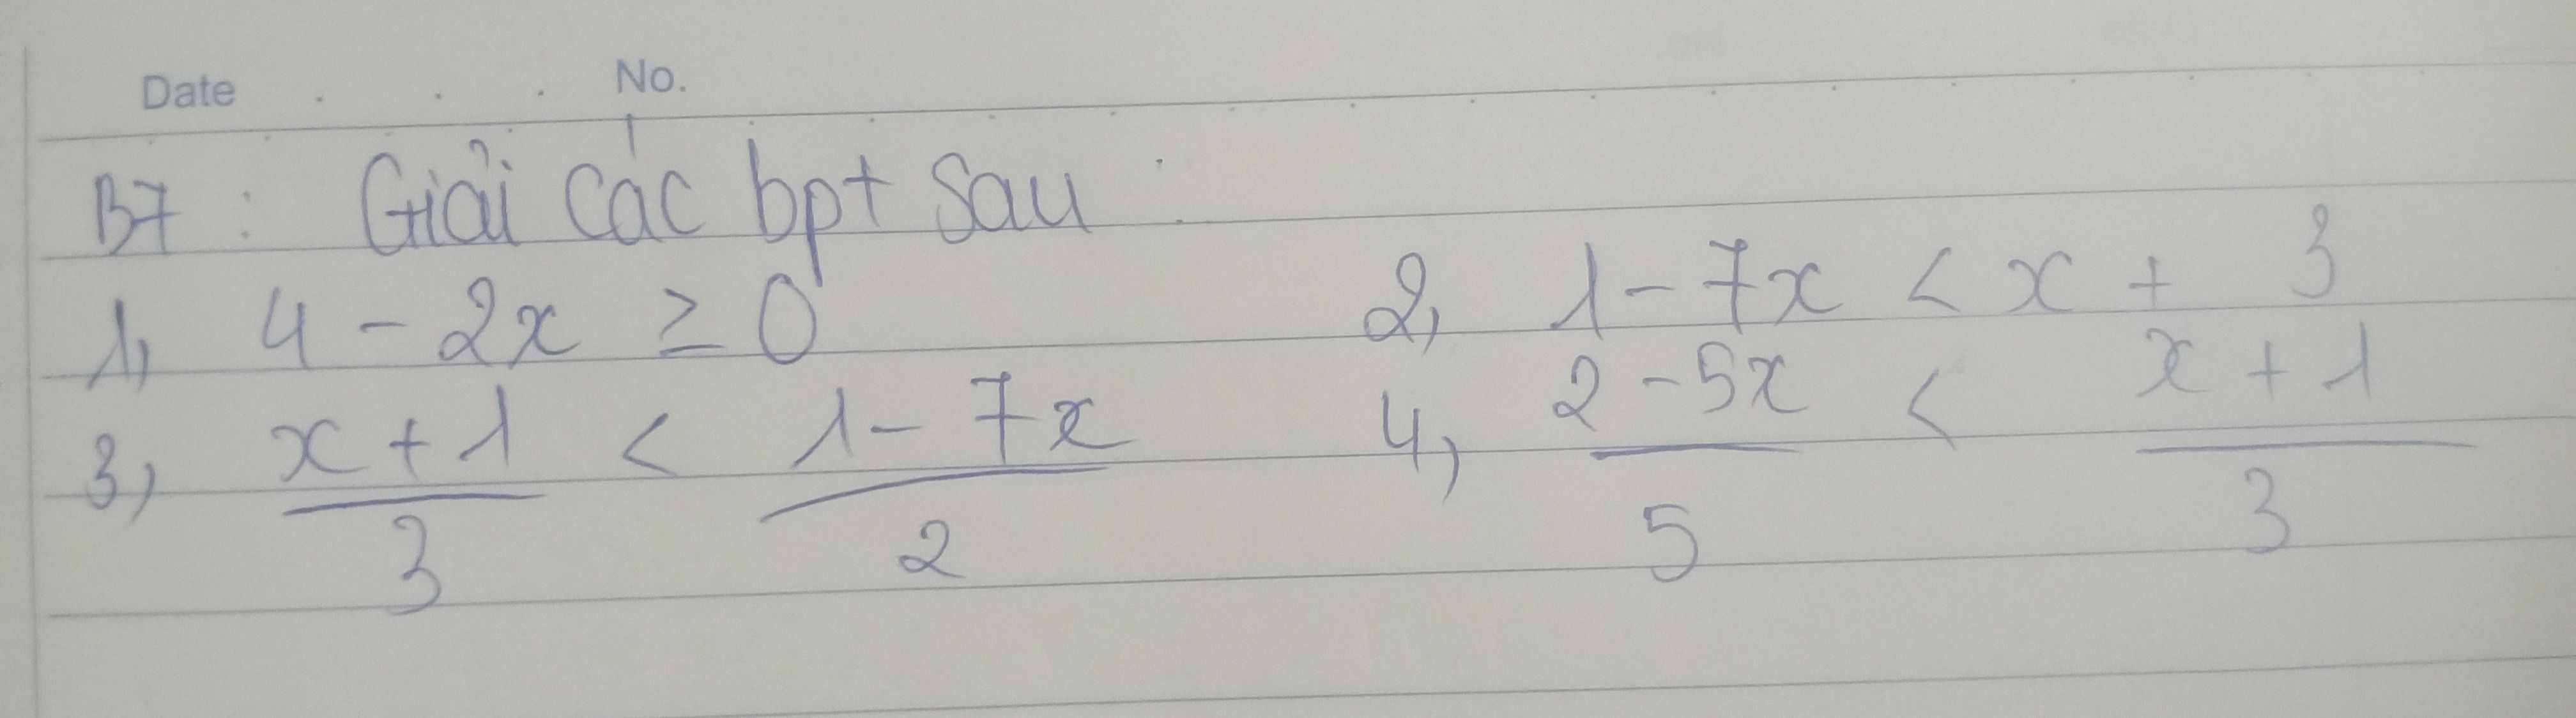 Date . . . No.
B7 : Giải các bpt sau :
1, 4 - 2x ≥ 0 2, 1 - 7x < x + 3
3, (x + 1)/3 < (1 - 7x)/2 4, (2 - 5x)/5 < (x + 1)/3